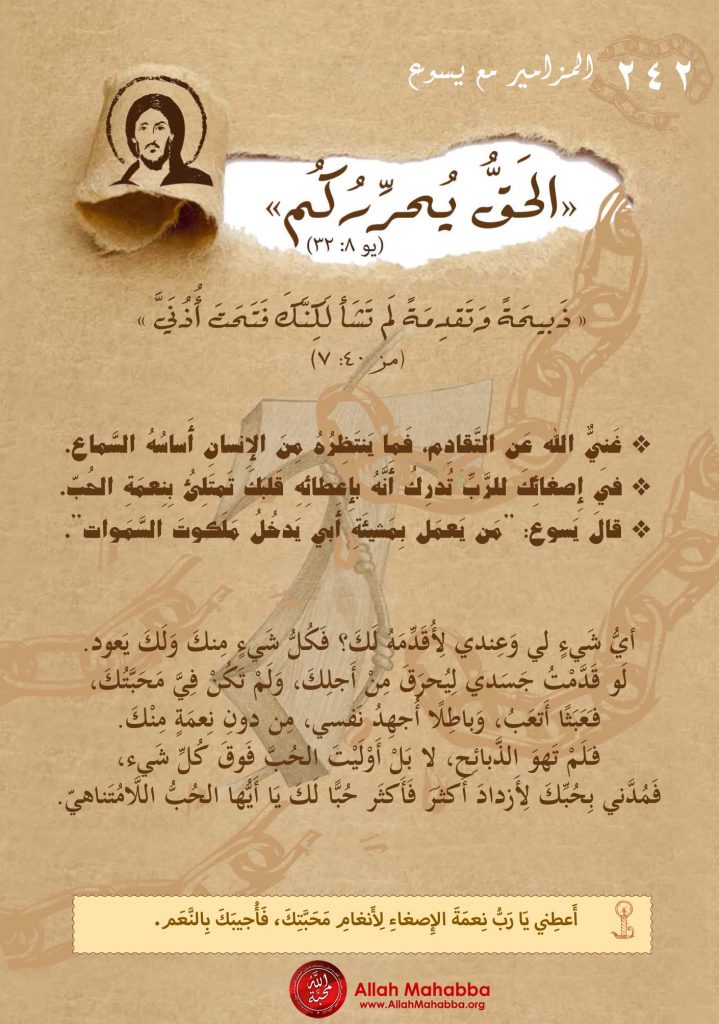 ٢٤٢ المزامير مع يسوع
«الحَقُّ يُحرِّرُكُم»
(يو ٨: ٣٢)
« ذَبيحَةً وَتَقدِمَةً لَم تَشَأ لَكِنَّكَ فَتَحتَ أُذُنَيَّ »
(مز ٤٠: ٧)
❖ غَنيٌّ الله عَنِ التَّقادِم، فَما يَنتَظِرُهُ مِنَ الإنسانِ أَساسُهُ السَّماع.
❖ في إِصغائِكَ للرَّبِّ تُدرِكُ أَنَّهُ بِإعطائِهِ قلبَكَ تَمتَلِئُ بِنِعمَةِ الحُبّ.
❖ قالَ يَسوع: "مَن يَعمَل بِمَشيئَةِ أَبي يَدخُلُ مَلكوتَ السَّمَوات".
أيُّ شَيءٍ لي وَعِندي لِأُقَدِّمَهُ لَكَ؟ فَكُلُّ شَيءٍ مِنكَ وَلَكَ يَعود.
لَو قَدَّمْتُ جَسَدي لِيُحرَقَ مِنْ أَجلِكَ، وَلَمْ تَكُنْ فِيَّ مَحَبَّتُكَ،
فَعَبَثًا أَتعَبُ، وَباطِلًا أُجهِدُ نَفْسي، مِن دونِ نِعمَةٍ مِنْكَ.
فَلَمْ تَهوَ الذَّبائِح، لا بَلْ أَوْلَيْتَ الحُبَّ فَوقَ كُلِّ شَيء،
فَمُدَّني بِحُبِّكَ لِأَزدادَ أَكثَرَ فَأَكثَر حُبًّا لَكَ يَا أَيُّها الحُبُّ اللَّامُتَناهيّ.
أَعطِني يَا رَبُّ نِعمَةَ الإِصغاءِ لِأَنغامِ مَحَبَّتِكَ، فَأُجيبَكَ بِالنَّعَم.
الله محبة
Allah Mahabba
www.AllahMahabba.org